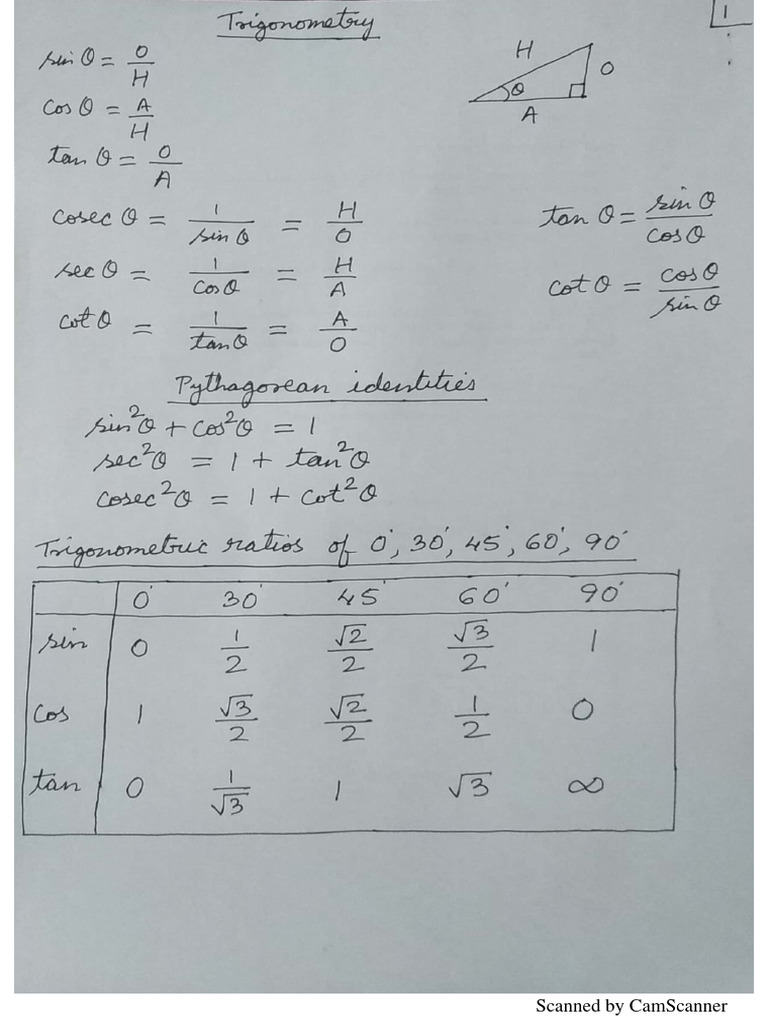 Trigonometry
1
sin θ = O/H
cos θ = A/H
tan θ = O/A
H
O
θ
A
cosec θ = 1/sin θ = H/O
sec θ = 1/cos θ = H/A
cot θ = 1/tan θ = A/O
tan θ = sin θ/cos θ
cot θ = cos θ/sin θ
Pythagorean identities
sin²θ + cos²θ = 1
sec²θ = 1 + tan²θ
cosec²θ = 1 + cot²θ
Trigonometric ratios of 0°, 30°, 45°, 60°, 90°
0° 30° 45° 60° 90°
sin 0 1/2 √2/2 √3/2 1
cos 1 √3/2 √2/2 1/2 0
tan 0 1/√3 1 √3 ∞
Scanned by CamScanner